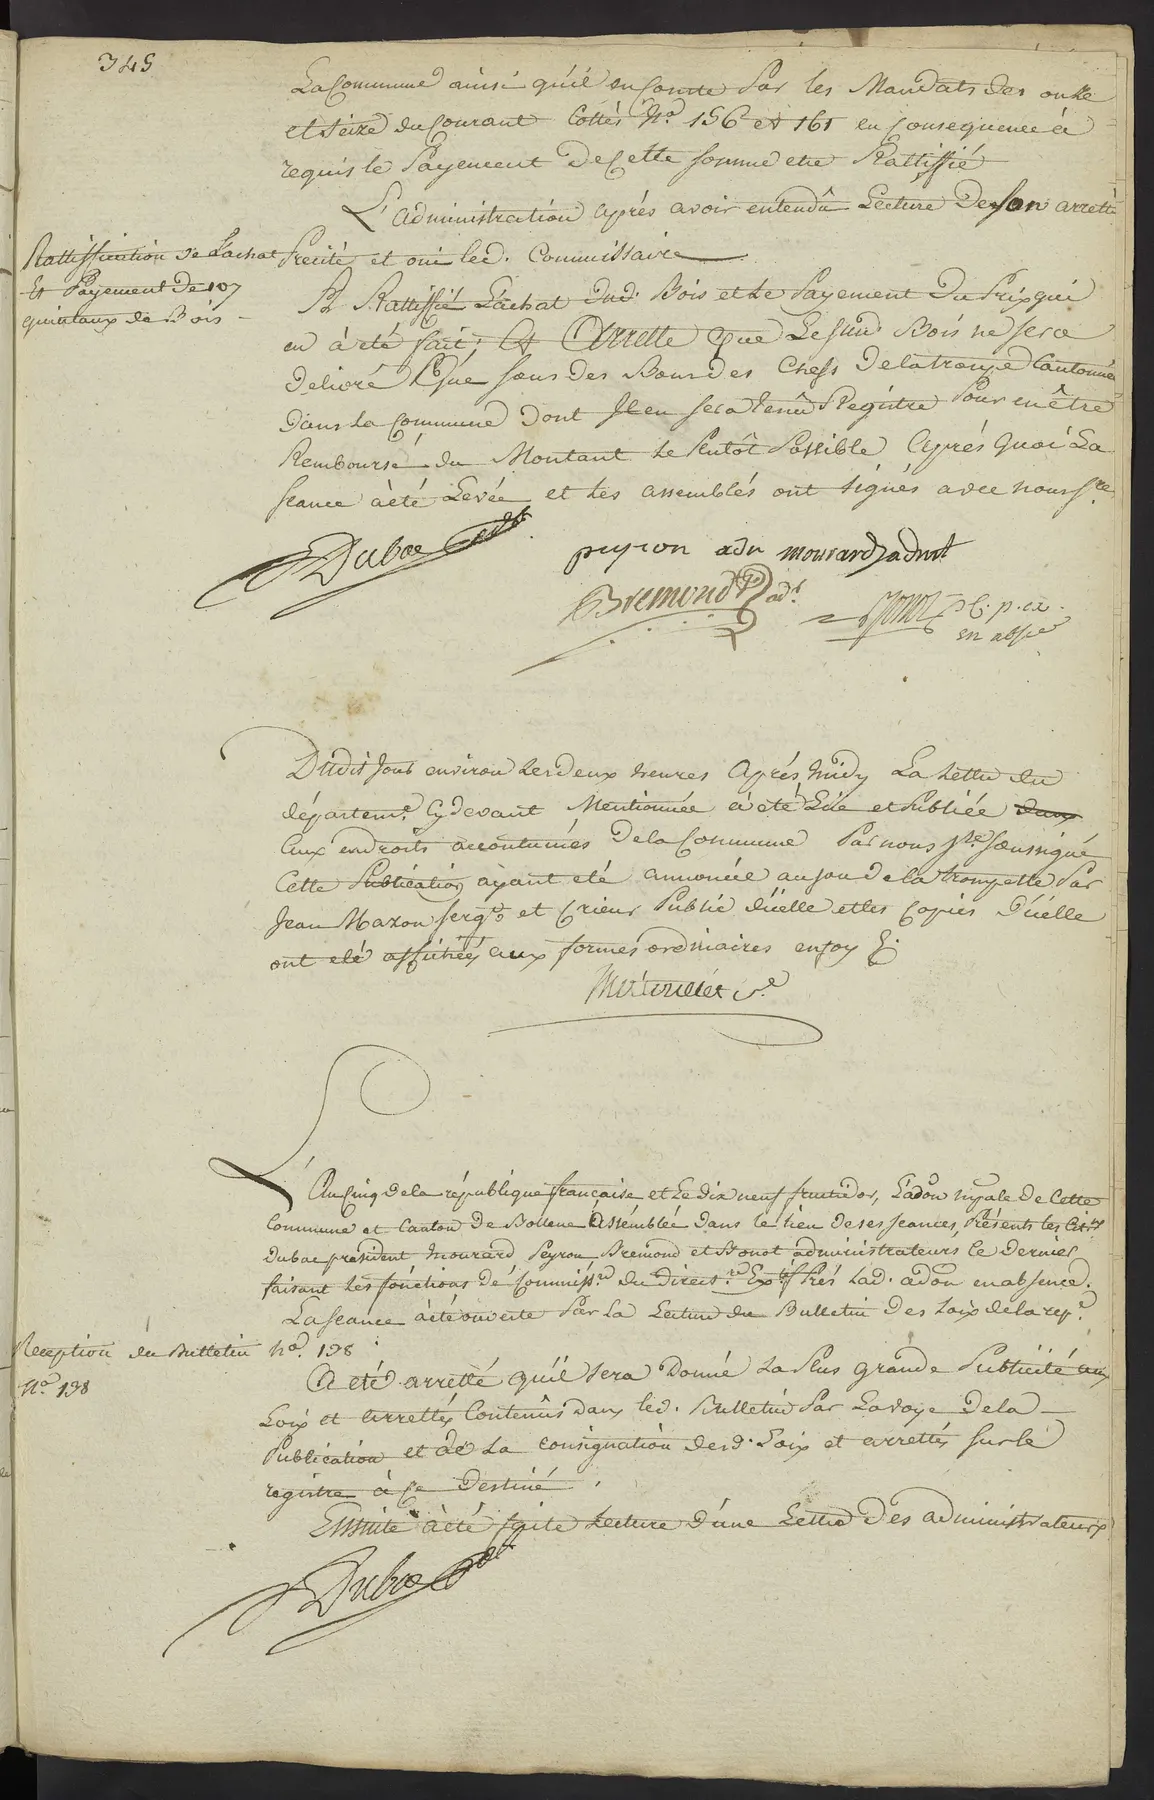 345
La Commune ainsi qu'il en Conste Par les Mandats des onze
et Seize du Courant Cottés No. 156 et 161 en Consequence à
requis le Payement de Cette somme etre Rattiffié
L'administration après avoir entendû Lecture de son arretté
Rattiffication de L'achat
Et Payement de 107
quintaux de Bois
Precité et oui led. Commissaire
A Rattiffié L'achat dud. Bois et Le Payement du Prix qui
en à été fait; Et Arrette Que Le susd. Bois ne sera
delivré Que sous des Bons des Chefs de la troupe Cantonnée
dans La Commune dont Il en sera tenû Registre Pour en être
Remboursé du Montant le Plutôt Possible Après Quoi La
seance àété Levée et les assemblés ont signés avec nous sre.
Dubac Pdt
peyron adn mourard adnt
Bremond adt.
Monot C. p. ex.
en absce
Dudit Jour environ les deux heures Après Midy La Lettre du
départemt. Cy devant Mentionnée à été Lüe et Publiée
Aux endroits accoutumés de la Commune Par nous sre. soussigné
Cette Publication ayant eté annoncée au son de la trompette Par
Jean Maron sergt. et Crieur Public d'icelle et les Copies d'icelle
ont eté affichées aux formes ordinaires en foy &.
L'An Cinq de la république française et Le dix neuf fructidor, L'adon mpale de Cette
Commune et Canton de Bollene Assemblée dans le Lieu de ses seances, Présents les Citns
Dubac president Mourard Peyron Bremond et Monot administrateurs, le Dernier
faisant Les fonctions de Commissre. du Direct. Extif Prés Lad. adon en absence.
La seance àété ouverte Par La Lecture du Bulletin des Loix de la repe.
Reception du Bulletin
No. 138
No. 138
A eté arretté qu'il sera Donné La Plus grande Publicité aux
Loix et arrettés Contenûs dans led. Bulletin Par La voye de la
Publication et de La Consignation desd. Loix et arrettés sur le
registre à Ce Destiné.
Ensuite àété faite Lecture d'une Lettre des administrateurs
Dubac Pdt